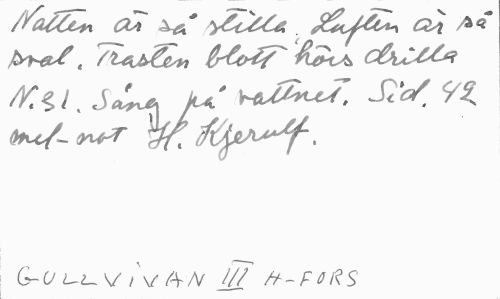 Natten är så stilla, Luften är så
sval. Trasten blott hörs drilla
N.31. Sång på vattnet. Sid. 42
mel-not H. Kjerulf.
GULLVIVAN III H-FORS